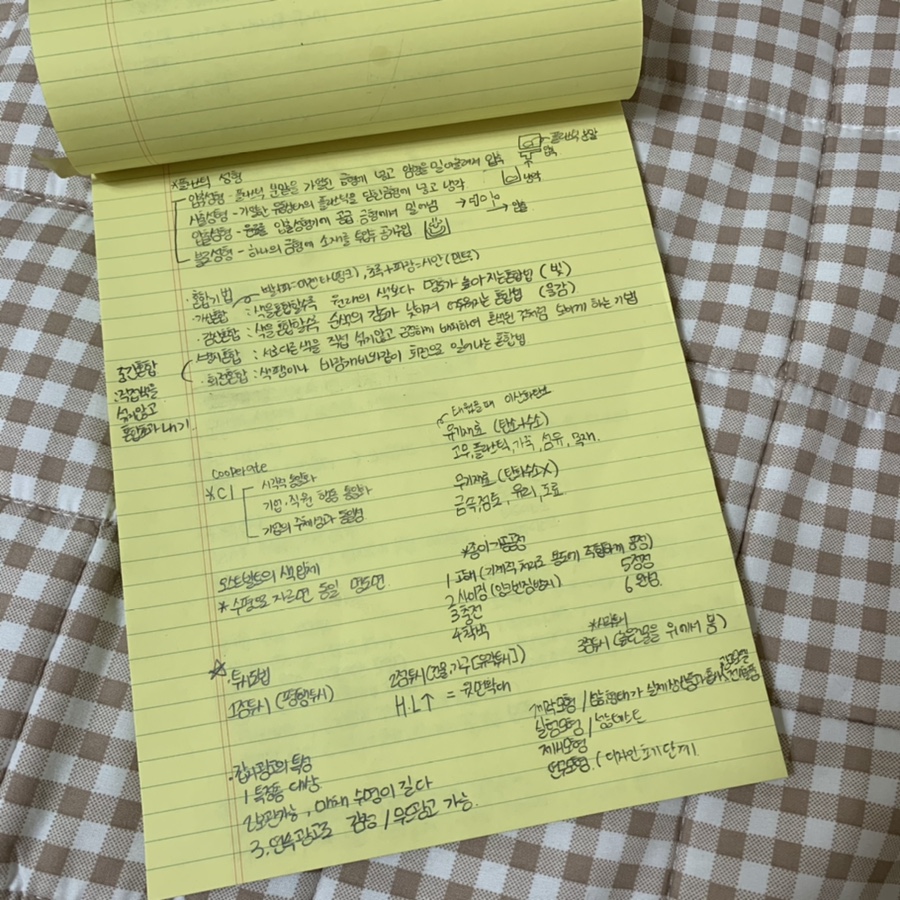 *플라스틱 성형
압축성형 - 플라스틱 분말을 가열된 금형에 넣고 압력을 밀어 압축
플라스틱 분말
압축
사출성형 - 가열한 유동상태의 플라스틱을 닫힌 금형에 넣고 냉각
냉각
압출성형 - 원료를 압출성형기에 공급 금형에서 밀어냄
압출
블로성형 - 하나의 금형에 소재를 공기주입
·혼합기법
빨+파=마젠타(핑크), 초록+파랑=시안(민트)
·가산혼합 : 색을 혼합할수록 원래의 색보다 명도가 높아지는 혼합법 (빛)
·감산혼합 : 색을 혼합할수록 순색의 강도가 낮아져 어두워지는 혼합법 (물감)
·병치혼합 : 서로 다른 색을 직접 섞지않고 조밀하게 배치하여 혼색된 것처럼 보이게 하는 기법
·회전혼합 : 색팽이나 바람개비와 같이 회전으로 일어나는 혼합법
중간혼합
:직접색을
섞지않고
혼합효과 내기
Cooperate
*CI
시각적 통일화
기업·직원 행동 통일화
기업의 주체성과 통일성
태웠을때 이산화탄소
유기재료 (탄소+수소)
고무, 플라스틱, 가죽, 섬유, 목재.
무기재료 (탄화수소X)
금속, 점토, 유리, 도료
오스트발트의 색입체
*수평으로 자르면 동일 명도면
*종이가공공정
1 고해 (기계적 처리로 용도에 적합하게 공정)
2 사이징 (잉크번짐방지)
3 충전
4 착색
5 정정
6 완성
☆투시도법
1점투시 (평행투시)
2점투시 (건물, 가구 [유각투시])
H.L↑ =
*사투시
3점투시 (높은건물을 위에서 봄)
제작모형 / 실험모형 / 성능테스트
제시모형
연구모형 (디자인 초기단계)
·잡지광고의 특성
1 특정한 대상
2 보관가능, 매체 수명이 길다
3. 연속광고로 감정 / 무드광고 가능.